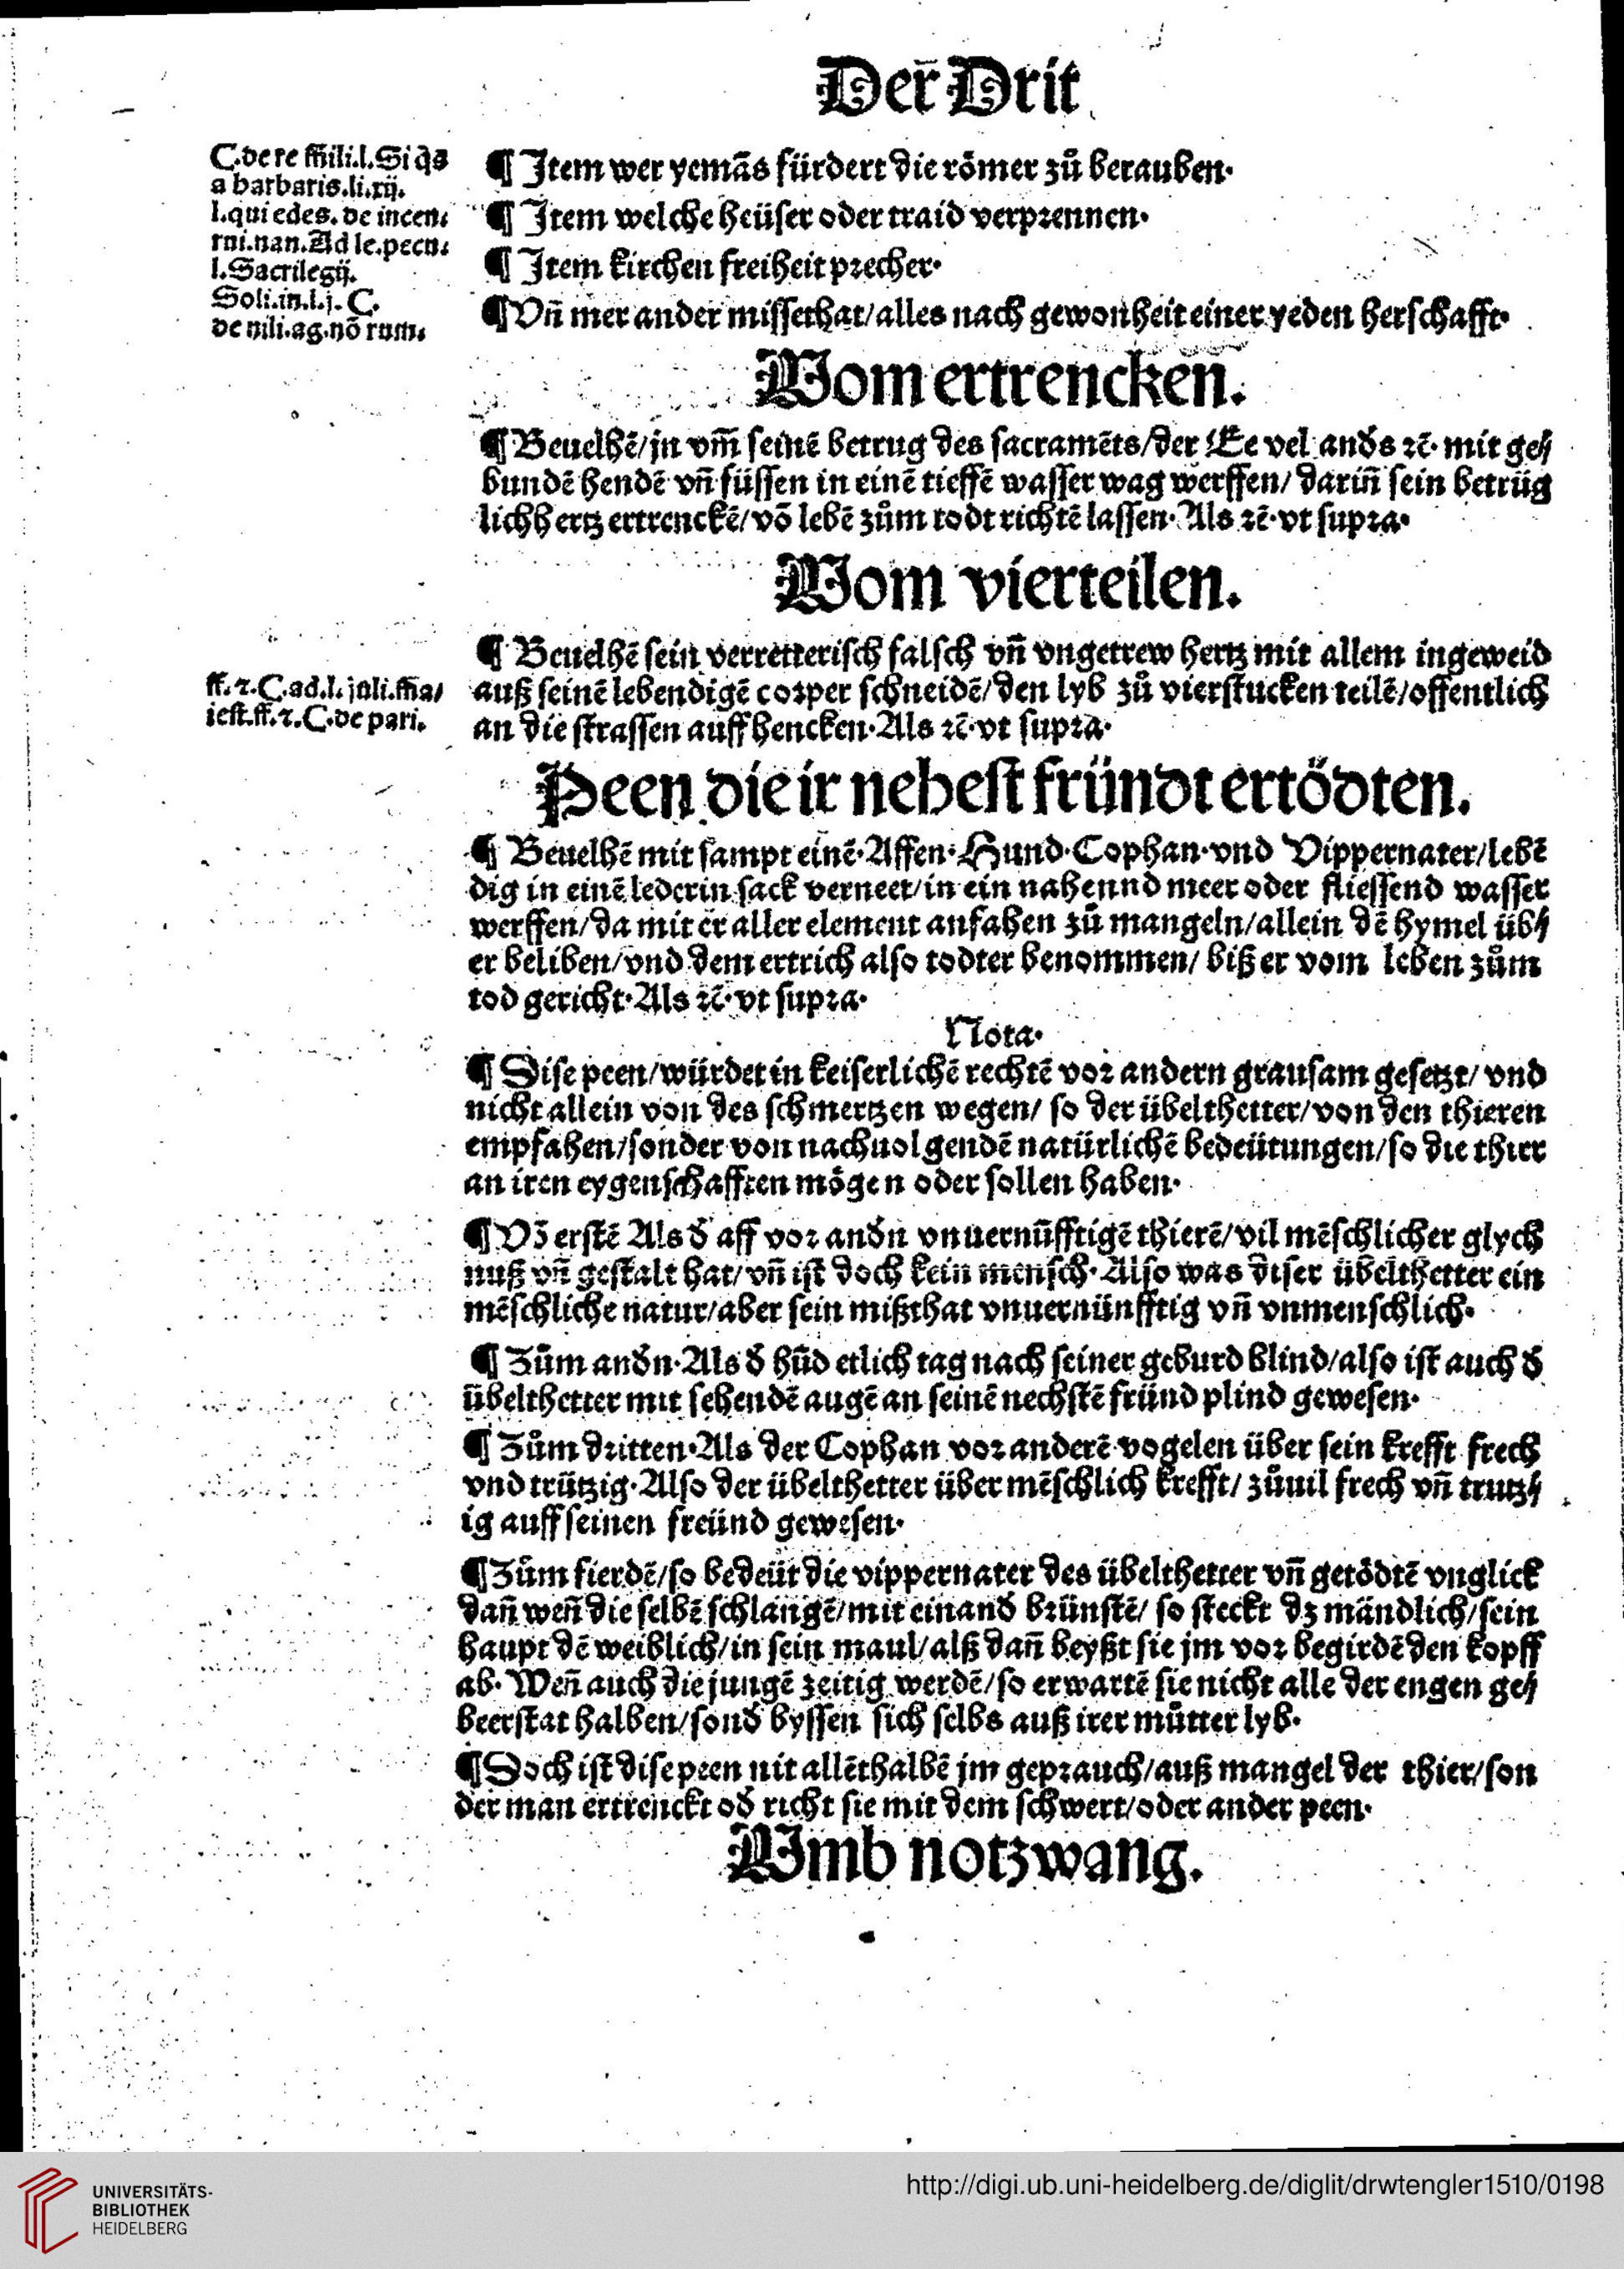 Der̄ Drit
C.de re m̄ili.l.Si q̄s
a barbaris.li.xij.
l.qui edes.de incen⸗
rui.nan.Ad le.pecu⸗
l.Sacrilegij.
Soli.in.l.j.C.
de nili.ag.nō rum.
¶ Item wer yemās fürdert die römer zů berauben·
¶ Item welche heüser oder traid verprennen·
¶ Item kirchen freiheit precher·
¶ Vn̄ mer ander missethat/alles nach gewonheit einer yeden herschafft·
Vom ertrencken.
¶ Beuelhē/jn vm̄ seinē betrug des sacramēts/der Ee vel anďs ꝛc̄· mit ge⸗
bundē hendē vn̄ füssen in einē tieffē wasser wag werffen/ darin̄ sein betrüg
lich hertz ertrenckē/vō lebē zům todt richtē lassen·Als ꝛc̄·vt supra·
Vom vierteilen.
¶ Beuelhē sein verretterisch falsch vn̄ vngetrew hertz mit allem ingeweid
auß seinē lebendigē corper schneidē/den lyb zů vierstucken teilē/offentlich
an die strassen auffhencken·Als ꝛc̄·vt supra·
ff.⁊.C.ad.l.juli.m̄a/
iest.ff.⁊.C.de pari.
Peen die ir nehest fründt ertödten.
¶ Beuelhē mit sampt einē·Affen·Hund·Cophan·vnd Vippernater/lebē
dig in einē lederin sack verneet/in ein nahennd meer oder fliessend wasser
werffen/da mit er aller element anfahen zů mangeln/allein dē hymel üb⸗
er beliben/vnd dem ertrich also todter benommen/ biß er vom leben zům
tod gericht·Als ꝛc̄·vt supra·
Nota·
¶ Dise peen/würdet in keiserlichē rechtē vor andern grausam gesetzt/ vnd
nicht allein von des schmertzen wegen/ so der übelthetter/von den thieren
empfahen/sonder von nachuolgendē natürlichē bedeütungen/so die thier
an iren eygenschafften mögen oder sollen haben·
¶ Vō erstē Als ď aff vor anďn vnuernūfftigē thierē/vil mēschlicher glych
nuß vn̄ gestalt hat/vn̄ ist doch kein mensch·Also was diser übelthetter ein
mēschliche natur/aber sein mißthat vnuernünfftig vn̄ vnmenschlich·
¶ Zům anďn·Als ď hūd etlich tag nach seiner geburd blind/also ist auch ď
übelthetter mit sehendē augē an seinē nechstē fründ plind gewesen·
¶ Zům dritten·Als der Cophan vor anderē vogelen über sein krefft frech
vnd trützig·Also der übelthetter über mēschlich krefft/ zůuil frech vn̄ trutz⸗
ig auff seinen freünd gewesen·
¶ Zům fierdē/so bedeüt die vippernater des übelthetter vn̄ getödtē vnglick
dan̄ wen̄ die selbē schlangē/mit einanď brünstē/ so steckt dz mändlich/sein
haupt dē weiblich/in sein maul/alß dan̄ beyßt sie jm vor begirdē den kopff
ab· Wen̄ auch die jungē zeitig werdē/so erwartē sie nicht alle der engen ge⸗
beerstat halben/sonď byssen sich selbs auß irer můtter lyb·
¶ Doch ist dise peen nit allēthalbē jm geprauch/auß mangel der thier/son
der man ertrenckt oď richt sie mit dem schwert/oder ander peen·
Vmb notzwang.
UNIVERSITÄTS-
BIBLIOTHEK
HEIDELBERG
http://digi.ub.uni-heidelberg.de/diglit/drwtengler1510/0198